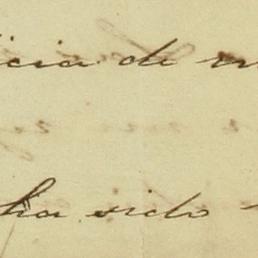 icia de
ha sido